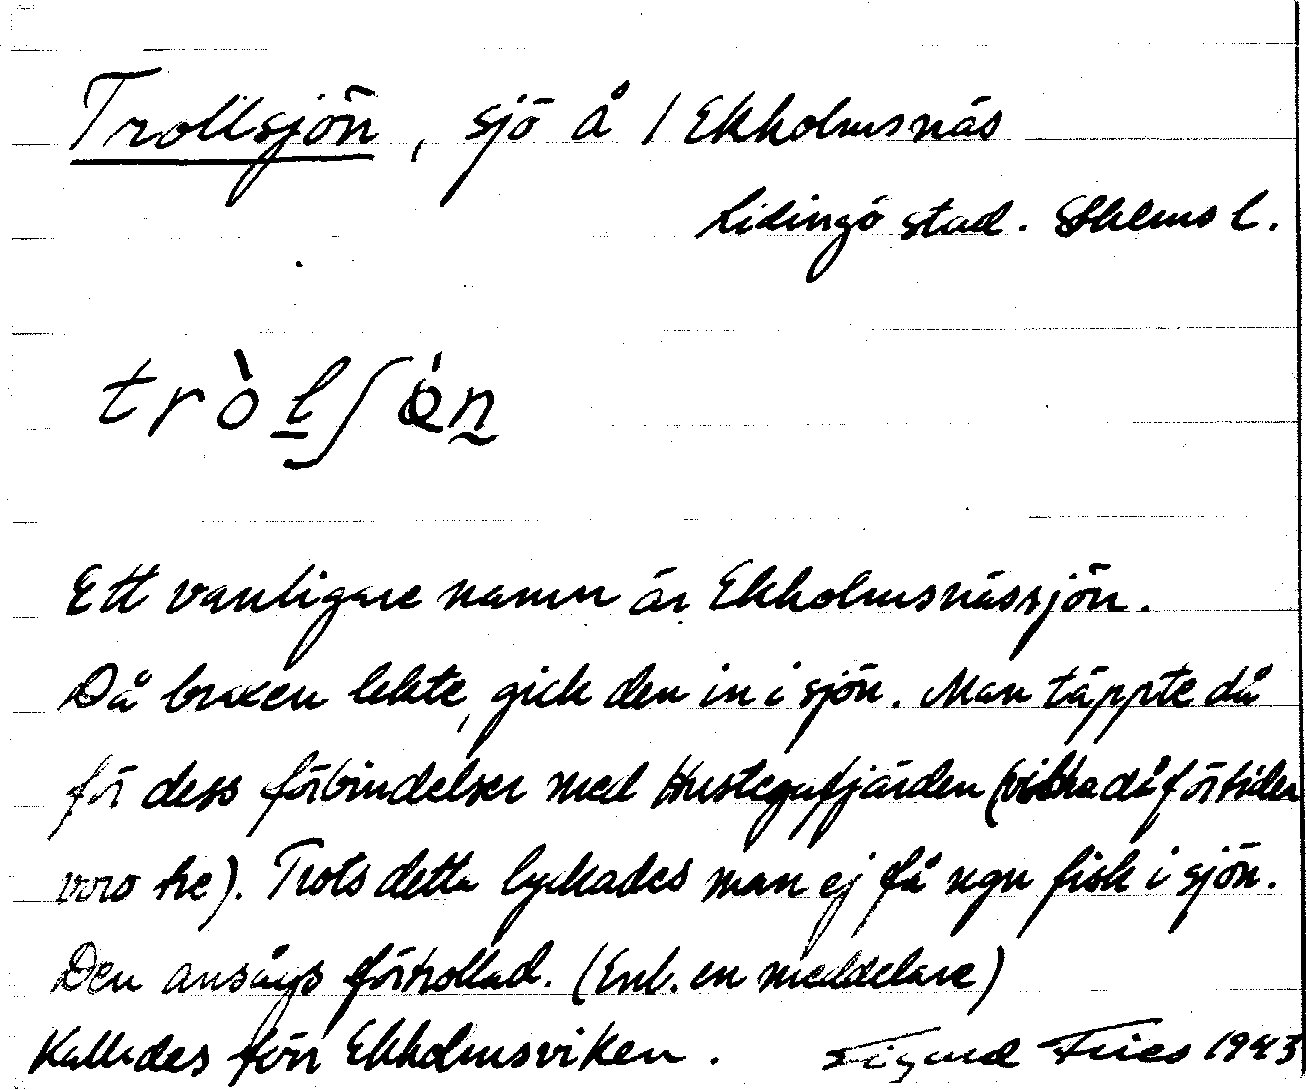 Trollsjön, sjö å / Ekholmsnäs
Lidingö stad. Sthlms l.
trò̱lʃö́n
Ett vanligare namn är Ekholmsnässjön.
Då braxen lekte, gick den in i sjön. Man täppte då
för dess förbindelser med Hustegafjärden (vilka då förtiden
voro tre). Trots detta lyckades man ej få ngn fisk i sjön.
Den ansågs förtrollad. (Enl. en meddelare)
Kallades förr Ekholmsviken.
Sigurd Fries 1943